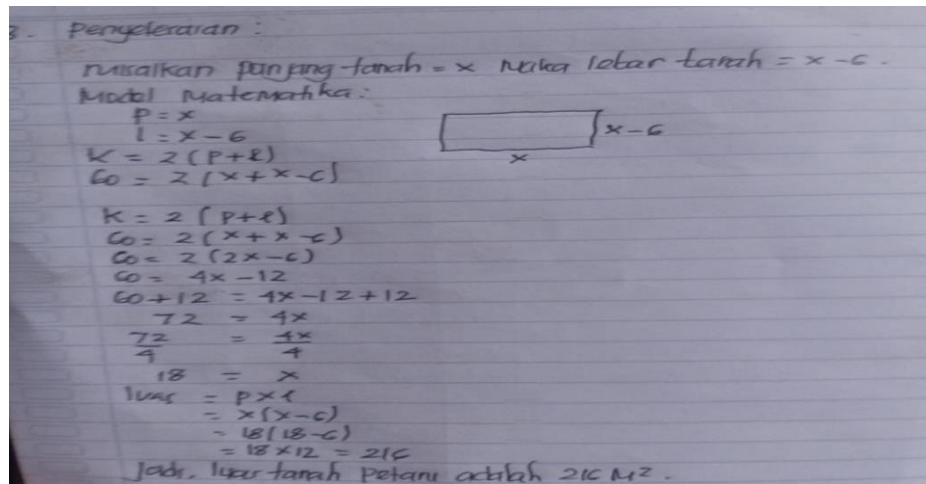 3. Penyelesaian :
misalkan panjang tanah = x maka lebar tanah = x - 6.
Model Matematika :
P = x
l = x - 6
x - 6
x
K = 2 (P+l)
60 = 2 (x + x - 6)
K = 2 (P+l)
60 = 2 (x + x - 6)
60 = 2 (2x - 6)
60 = 4x - 12
60 + 12 = 4x - 12 + 12
72 = 4x
72/4 = 4x/4
18 = x
luas = P x l
= x (x - 6)
= 18 (18 - 6)
= 18 x 12 = 216
Jadi, luas tanah Petani adalah 216 M².